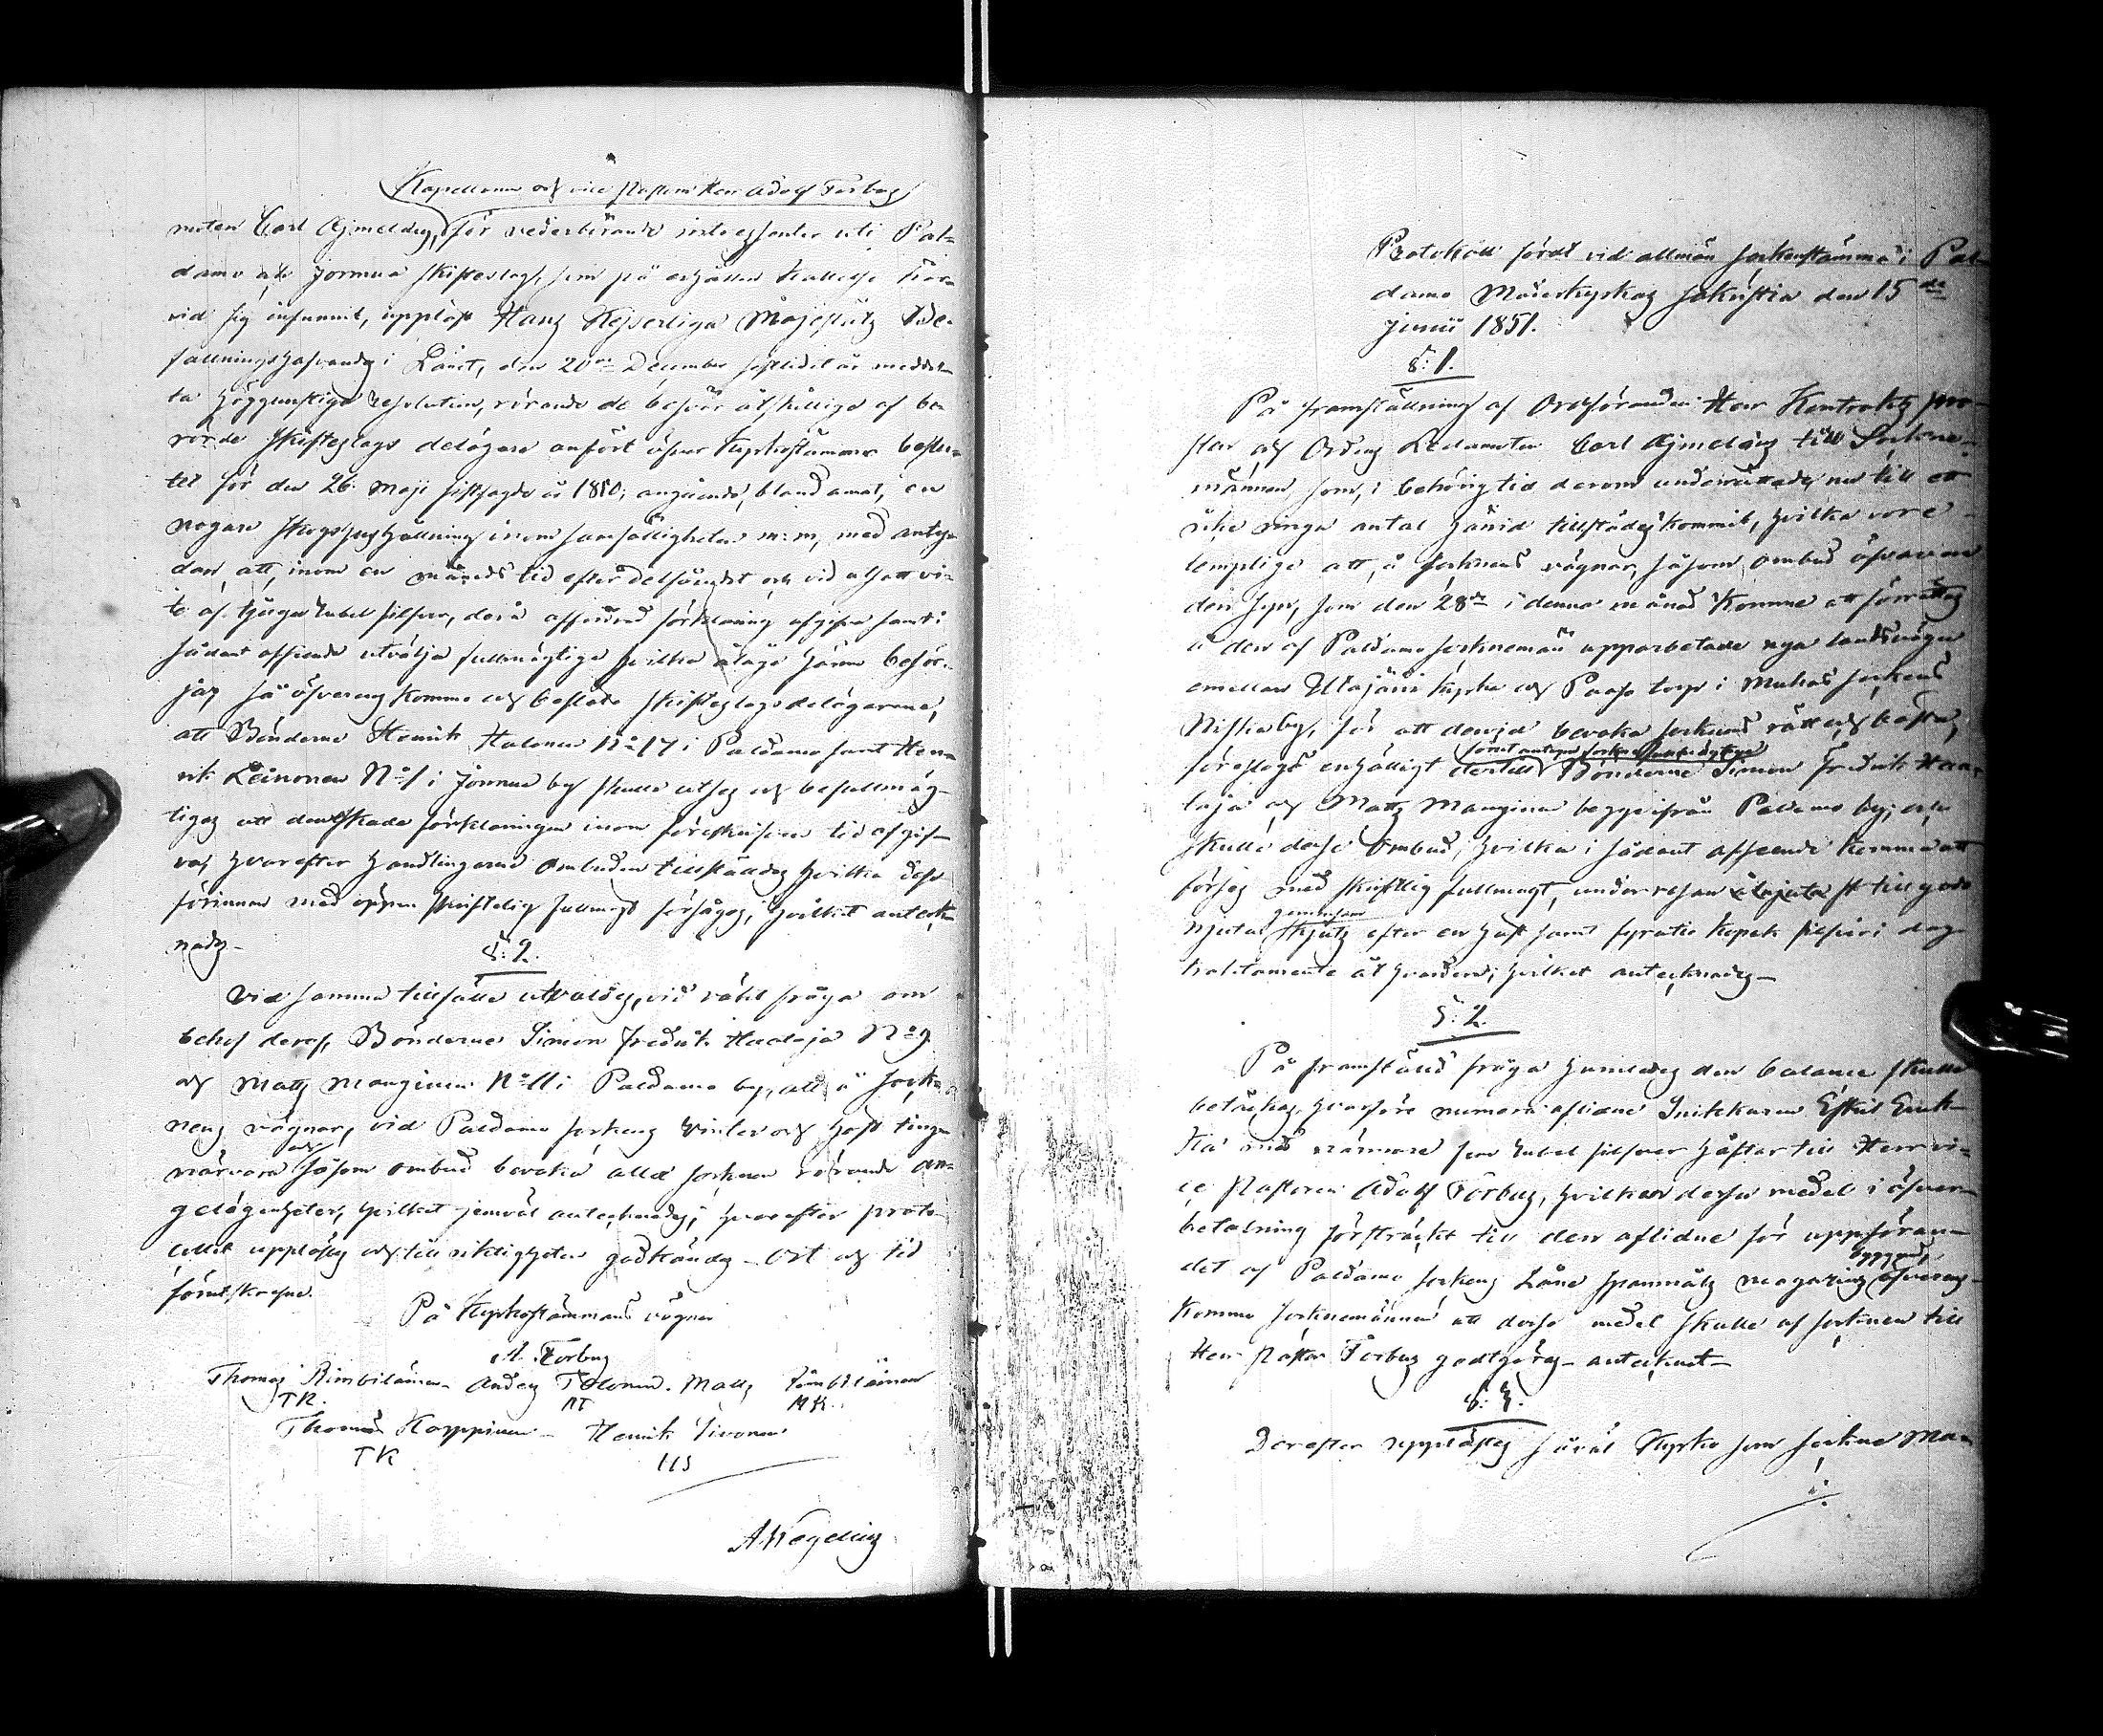 Kapellanen och vice Pastorn Herr Adolf Forbus
moten Carl Ajmelæus, för vederbörande intressenter uti Pal-
damo och Jormua skifteslag, som på erhållen kallelse här-
vid sig infunnit, upplöst Hans Kejserliga Majestäts Be-
fallningshafvandes i Länet, den 20de December sistledit år medde-
ta höggunstiga resolution, rörande de besvär åtskillige af be-
rörde skifteslags delägare anfört öfver Kyrkostämmans beslu-
tet för den 26 Maji sistsagde år 1850; angående, bland annat, en
nogare skogshushållning inom samfälligheten m: m, med antyd-
dan, att, inom en månads tid efter delfåendet och vid
te af tjugu rubel silfver, derå afgifva samt i
sådant afseende utvälja fullmägtige hvilka ålåge
så öfverens komme och beslöto skifteslags delägarene,
att Bönderne Henrik Halonen No 17 i Paldamo samt Hen-
rik Leinonen No 1 i Jormua by skulle utses och befullmäg-
tigas att den förklaringen inom föreskrifven tid afgif-
va, hvarefter handlingarne ombuden tillställdes hvilka dess
förinnan med öppen skriftelig fullmagt förságos; hvilket anteck-
nades.
§: 2.
Vid samma tillfälle utvaldes, vid väckt fråga om
behof deraf, Bönderne Simon Fredrik Haaloja No 9
och Matts Manginen No 11 i Paldamo by, att å Sock-
nens vägnar, vid Paldamo Sockens Vinter och Höst ting
närvara och såsom ombud bevaka alla Socknen rörande an-
gelägenheter, hvilket jemväl antecknades; hvarefter proto-
collet upplästes och till riktigheten godkändes. Ort och tid
förutskrefne.
På Kyrkostämmans vägnar
A. Forbus
Thomas Kimbiläinen Anders Tolonen. Matts Kimbiläinen
TK. AT MK.
Thomas Karppinen Henrik Sivonen
TK HS
A. Wegelius
Protokoll fördt vid allmän Sockenstämma i Pal-
damo Moderkyrkas sakristia den 15de
junii 1851.
§: 1.
På framställning af Ordföranden Herr Kontrakts pro-
sten och Ordens Ledamoten Carl Ajmelæus till Sockne-
männen, som, i behörig tid derom underrättade, nu till ett
icke ringa antal härvid tillstädeskommit, hvilka vore
lemplige att, å Socknens vägnar, såsom ombud öfvervara
den syn, som den 28de i denna månad komme att förrättas
å den af Paldamo Socknemän upparbetade nya landsvägen
emellan Utajärvi kyrka och Paaso torp i Muhos Sockens
Niska by, för att dervid bevaka Socknens rätt och bästa,
förut antagne Sockne fullmägtige
föreslogs enhälligt dertill Bönderne Simon Fredrik Haa-
loja och Matts Manginen begge ifrån Paldamo by; och
skulle desse Ombud, hvilka i sådant afseende komme att
förses med skriftlig fullmagt, under resan till godo
gemensam
njuta skjuts efter en häst samt fyratio kopek silfver i dag-
traktamente åt hvardera; hvilket antecknades.
§: 2.
På framställd fråga huruledes den balance skulle
betäckas, hvarföre numera aflidne Snickaren
med närmare sex rubel silfver häftar till Herr vi-
ce Pastorn Adolf Forbus, hvilken desse medel i öfver-
betalning försträckt till den aflidne för uppföran-
det af Paldamo Sockens Låne spannmåls magazins byggnad, öfverens-
komme Socknemännen att desse medel skulle af Socknen till
Herr Pastor Forbus godtgöras. antecknat.
§: 3.
Derefter upplästes såväl Kyrko som Sockne Ma-